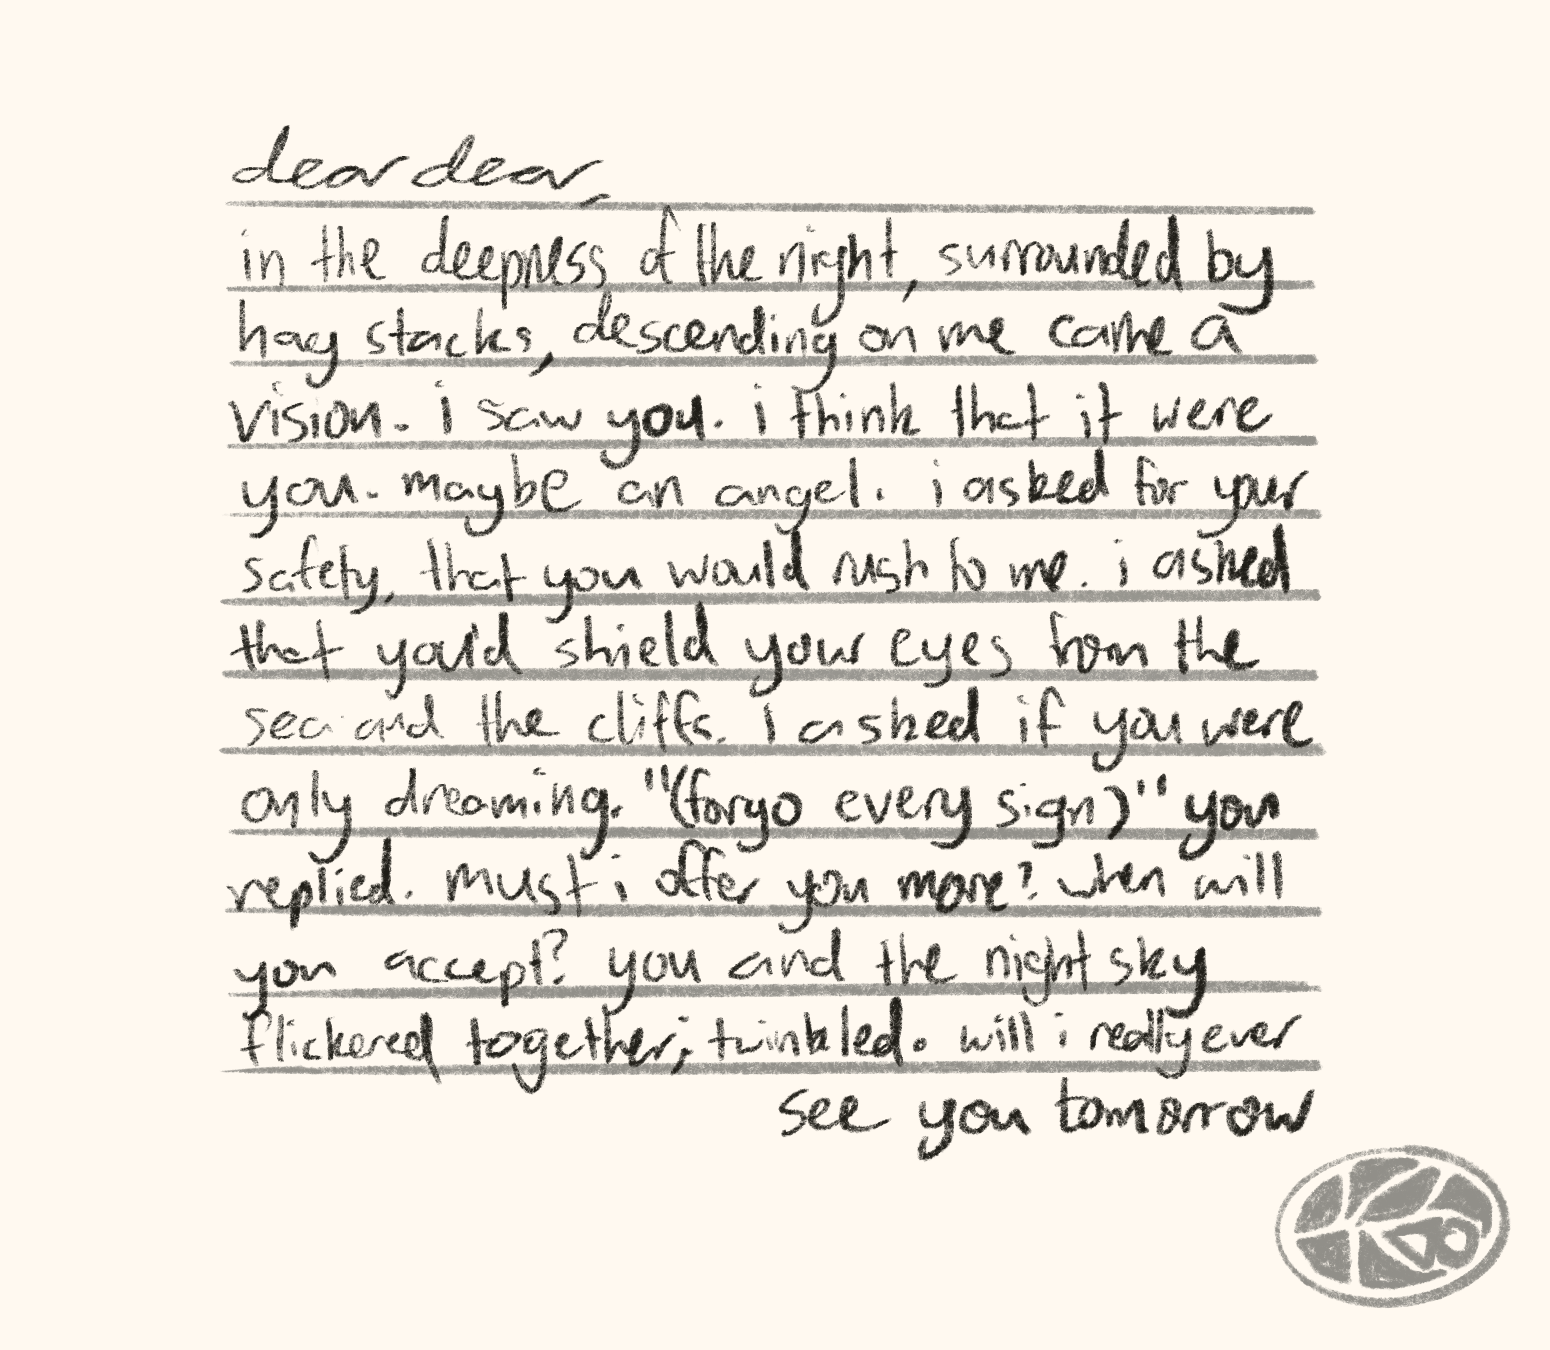 dear dear,
in the deepness of the night, surrounded by
hay stacks, descending on me came a
vision. i saw you. i think that it were
you. maybe an angel. i asked for your
safety, that you would rush to me. i asked
that you'd shield your eyes from the
sea and the cliffs. i asked if you were
only dreaming. "(forgo every sign)" you
replied. must i offer you more? when will
you accept? you and the night sky
flickered together; twinkled. will i really ever
see you tomorrow